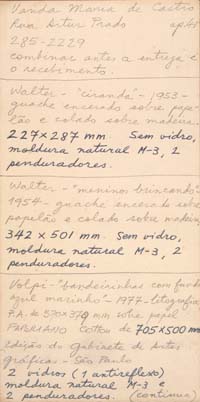 Vanda Maria de Castro
Rua Artur Prado ap. 45
285-2229
combinar antes a entrega e
o recebimento.
Walter - "ciranda" - 1953 -
guache encerado sobre pape-
lão e colado sobre madeira.
227 x 287 mm. Sem vidro,
moldura natural M-3, 2
penduradores.
Walter - "meninos brincando"
1954 - guache encerado sobre
papelão e colado sobre madeira,
342 x 501 mm. Sem vidro,
moldura natural M-3, 2
penduradores.
Volpi - "bandeirinhas com fundo
azul marinho" - 1977 - litografia
P.A. de 570 x 378 mm sobre papel
FABRIANO cotton de 705 x 500 mm
Edição do gabinete de Artes
gráficas - São Paulo
2 vidros (1 antireflexo)
moldura natural M-3 e
2 penduradores. (continua)